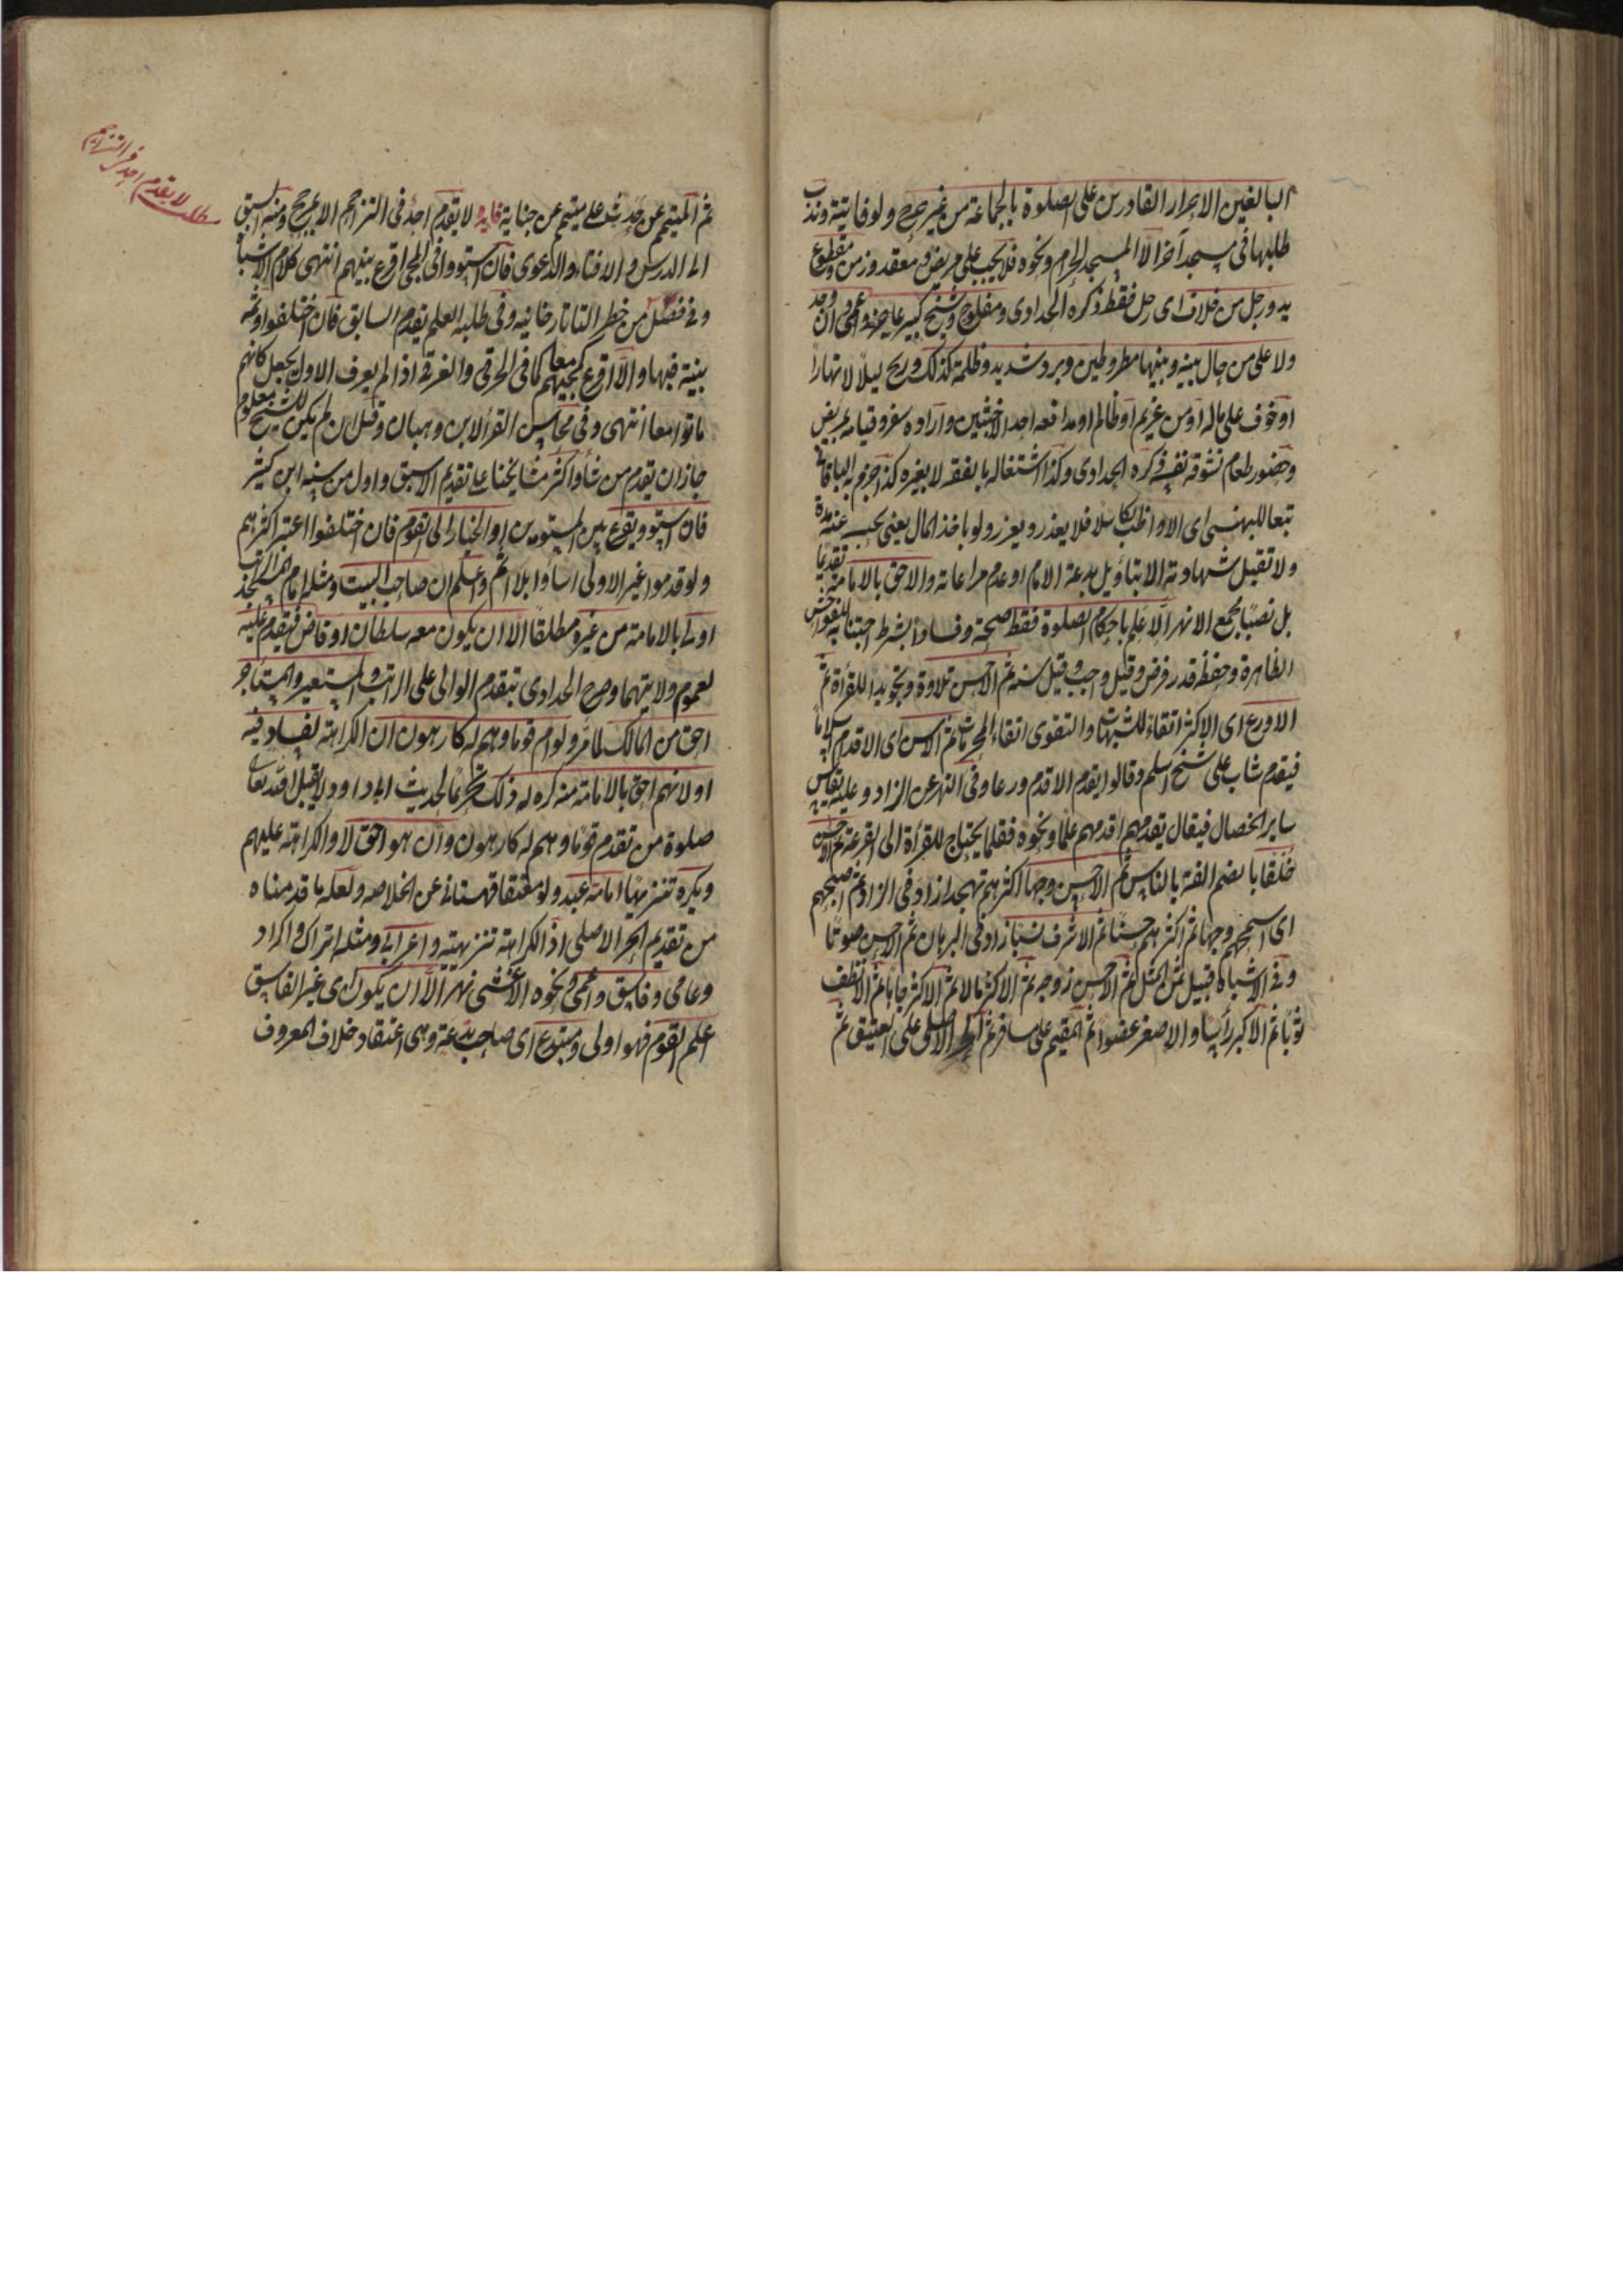 البالغين الاحرار القادرين على الصلوة بالجماعة من غير حرج ولو فاتته وندب
طلبها فى مسجد آخر الا المسجد الحرام ونحوه فلا يجب على مريض ومقعد وزمن ومقطوع
يد ورجل من خلاف اى رجل فقط ذكره الحدادى ومفلوج وشيخ كبير عاجز واعمى وان وجد
ولا على من حال بينه وبينها مطر وطين وبرد شديد وظلمة كذلك وريح ليلا لا نهارا
او خوف على ماله او من غريم او ظالم او مدافعه احد الاخبثين وارادة سفر وقيامه بمريض
وحضور طعام تشوقه نفسه ذكره الحدادى وكذا اشتغاله بالفقه لا بغيره كذا جزم به الباقانى
تبعا للبهنسى اى الا اذا واظب تكاسلا فلا يعذر ويعزر ولو باخذ المال يعنى بحبسه عنه مدة
ولا تقبل شهادته الا بتاويل بدعة الامام او عدم مراعاته والاحق بالامامة تقديما
بل نصبا مجمع الانهر الاعلم باحكام الصلوة فقط صحة وفسادا بشرط اجتنابه للفواحش
الظاهرة وحفظه قدر فرض وقيل واجب وقيل سنه ثم الاحسن تلاوة وتجويدا للقرأة ثم
الاورع اى الاكثر اتقاء للشبهات والتقوى اتقاء المحرمات ثم الاسن اى الاقدم اسلاما
فيقدم شاب على شيخ اسلم وقالوا يقدم الاقدم ورعا وفى النهر عن الزاد وعليه يقاس
ساير الخصال فيقال يقدمهم اقدمهم علما ونحوه فقلما يحتاج للقرأة الى القرعة ثم الاحسن
خلقا بالضم الفة بالناس ثم الاحسن وجها اكثرهم تهجدا زاد فى الزاد ثم اصبحهم
اى اسمحهم وجها ثم اكثرهم حسبا ثم الاشرف نسبا زاد فى البرهان ثم الاحسن صوتا
وفى الاشباه قبيل ثمن المثل ثم الاحسن زوجه ثم الاكثر مالا ثم الاكثر جاها ثم الانظف
ثوبا ثم الاكبر رأسا والاصغر عضوا ثم المقيم على مسافر ثم الحر الاصلى على العتيق ثم
لا يقدم احد فى التزاحم
ثم المتيمم عن حدث على متيمم عن جنابة فايده لا يقدم احد فى التزاحم الا بمرجح ومنه السبق
الى الدرس والافتاء والدعوى فان استووا فى المجى اقرع بينهم انتهى كلام الاشباه
وفى فصل من خطر التاتارخانيه وفى طلبه العلم يقدم السابق فان اختلفوا وثمه
بينة فبها والا اقرع كمجيهم معا كما فى الحرقى والغرقى اذا لم يعرف الاول يجعل كانهم
ماتوا معا انتهى وفى محاسن القرا لابن وهبان وقيل ان لم يكن للشيخ معلوم
جاز ان يقدم من شاء واكثر مشايخنا على تقديم الاسبق واول من سنه ابن كثير
فان استووا يقرع بين المستوين او الخيار الى القوم فان اختلفوا اعتبر اكثرهم
ولو قدموا غير الاولى اساوا بلا اثم واعلم ان صاحب البيت ومثله امام المسجد الراتب
اولى بالامامة من غيره مطلقا الا ان يكون معه سلطان او قاض فيقدم عليه
لعموم ولايتهما وصرح الحدادى بتقدم الوالى على الراتب والمستعير والمستأجر
احق من المالك لما مر ولو ام قوما وهم له كارهون ان الكراهة لفساد فيه
او لانهم احق بالامامة منه كره له ذلك تحريما لحديث ابى داوود لا يقبل الله تعالى
صلوة من تقدم قوما وهم له كارهون وان هو احق لا والكراهة عليهم
ويكره تنزيها امامة عبد ولو معتقا قهستانى عن الخلاصه ولعله ما قدمناه
من تقديم الحر الاصلى اذ الكراهة تنزيهية واعرابى ومثله اتراك واكراد
وعامى وفاسق واعمى ونحوه الاعشى نهر الا ان يكون اى غير الفاسق
اعلم القوم فهو اولى ومبتدع اى صاحب بدعة وهى اعتقاد خلاف المعروف